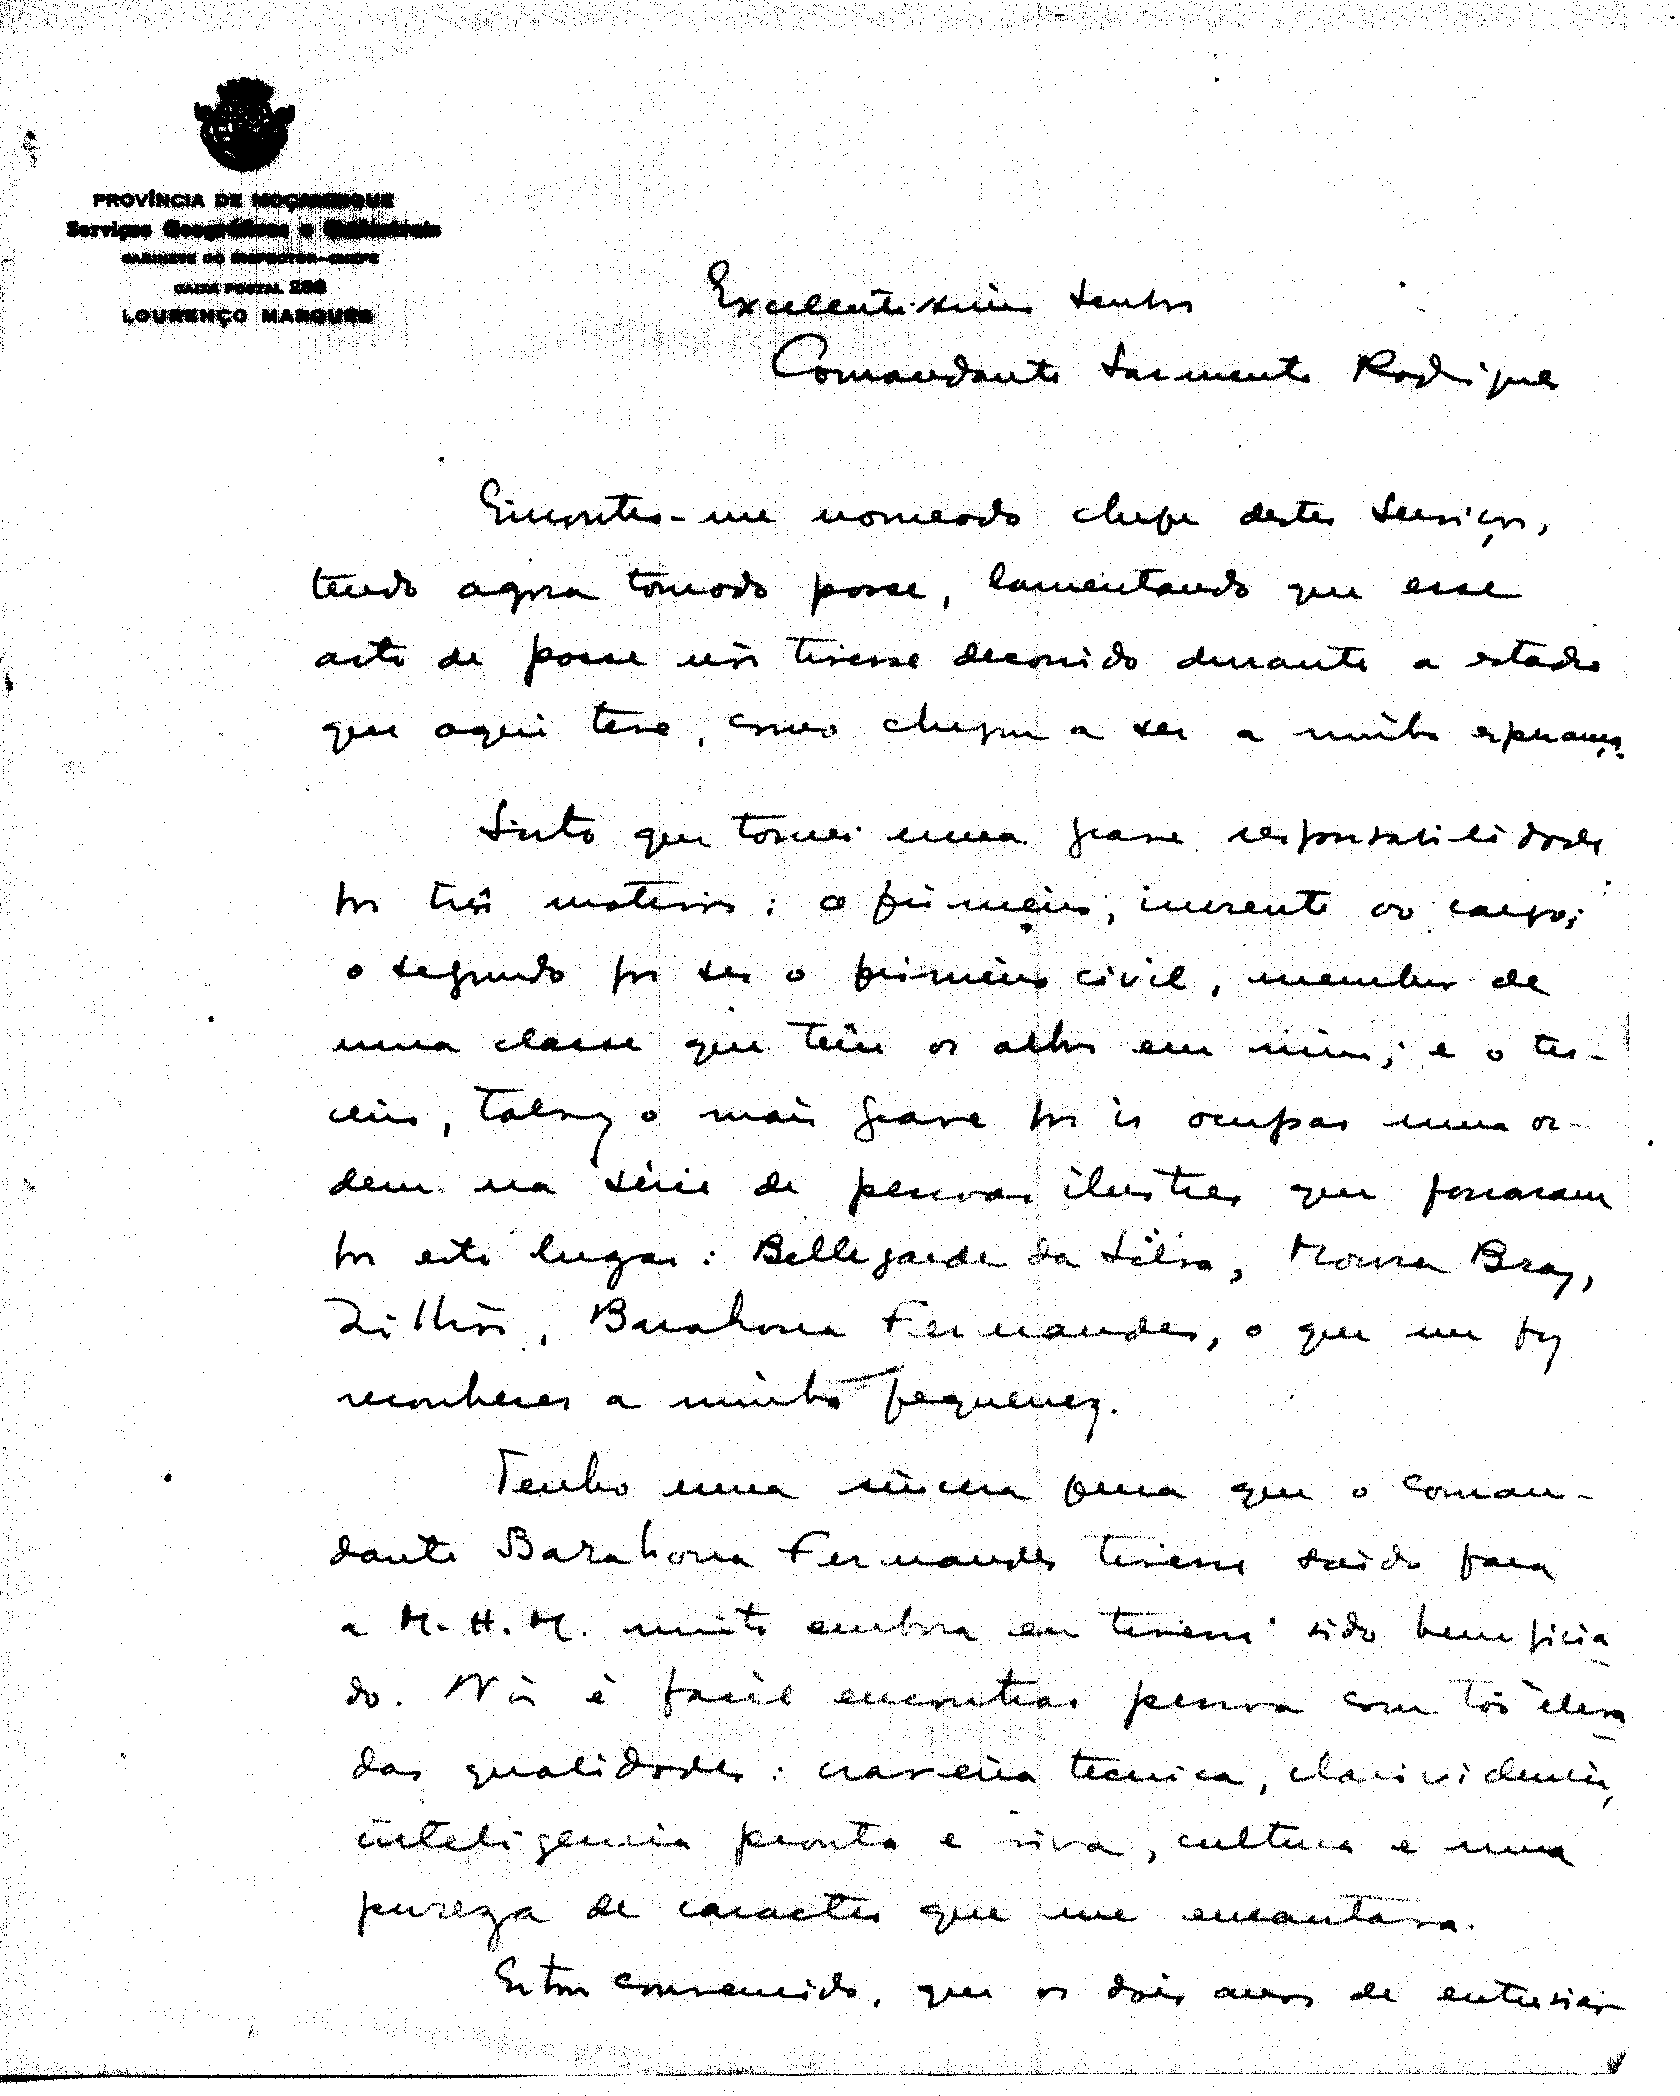 PROVÍNCIA DE MOÇAMBIQUE
Serviços Geográficos e Cadastrais
GABINETE DO INSPECTOR-CHEFE
CAIXA POSTAL 288
LOURENÇO MARQUES
Excelentíssimo Senhor
Comandante Sarmento Rodrigues
Encontro-me nomeado chefe destes Serviços,
tendo agora tomado posse, lamentando que esse
acto de posse não tivesse decorrido durante a estadia
que aqui teve, como chegou a ser a minha esperança.
Sinto que tomei uma grave responsabilidade
por três motivos: o primeiro, inerente ao cargo;
o segundo por ser o primeiro civil, membro de
uma classe que têm os olhos em mim; e o ter-
ceiro, talvez o mais grave por ir ocupar uma or-
dem na série de pessoas ilustres que passaram
por este lugar: Bellegarde da Silva, Moura Braz,
Zilhão, Barahona Fernandes, o que me fez
reconhecer a minha pequenez.
Tenho uma sincera pena que o coman-
dante Barahona Fernandes tivesse saído para
a M.H.M. muito embora eu tivesse sido beneficia-
do. Não é facil encontrar pessoa com tão eleva-
das qualidades: craveira tecnica, clarividencia,
inteligencia pronta e viva, cultura e uma
pureza de caracter que me encantava.
Estou convencido, que os dois anos de entusias-